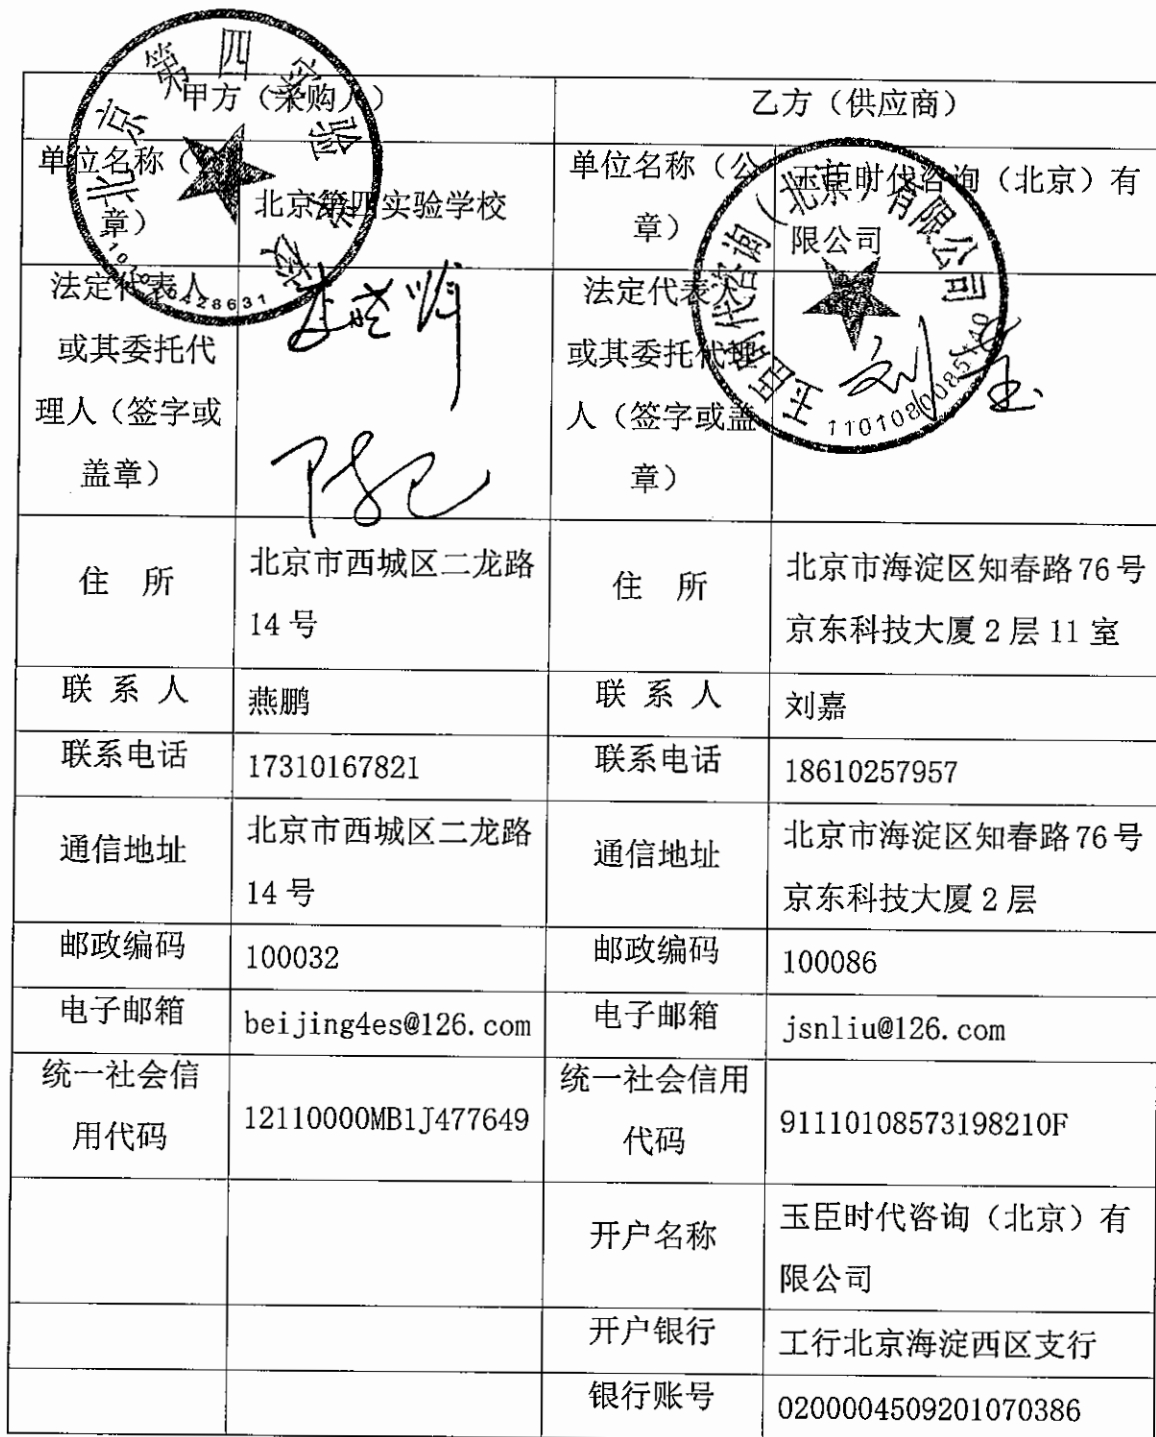 甲方（采购人） 乙方（供应商）
单位名称（公章） 北京第四实验学校 单位名称（公章） 玉臣时代咨询（北京）有限公司
法定代表人或其委托代理人（签字或盖章） 法定代表人或其委托代理人（签字或盖章）
住 所 北京市西城区二龙路14号 住 所 北京市海淀区知春路76号京东科技大厦2层11室
联 系 人 燕鹏 联 系 人 刘嘉
联系电话 17310167821 联系电话 18610257957
通信地址 北京市西城区二龙路14号 通信地址 北京市海淀区知春路76号京东科技大厦2层
邮政编码 100032 邮政编码 100086
电子邮箱 beijing4es@126.com 电子邮箱 jsnliu@126.com
统一社会信用代码 12110000MB1J477649 统一社会信用代码 91110108573198210F
开户名称 玉臣时代咨询（北京）有限公司
开户银行 工行北京海淀西区支行
银行账号 0200004509201070386
北京第四实验学校
玉臣时代咨询（北京）有限公司